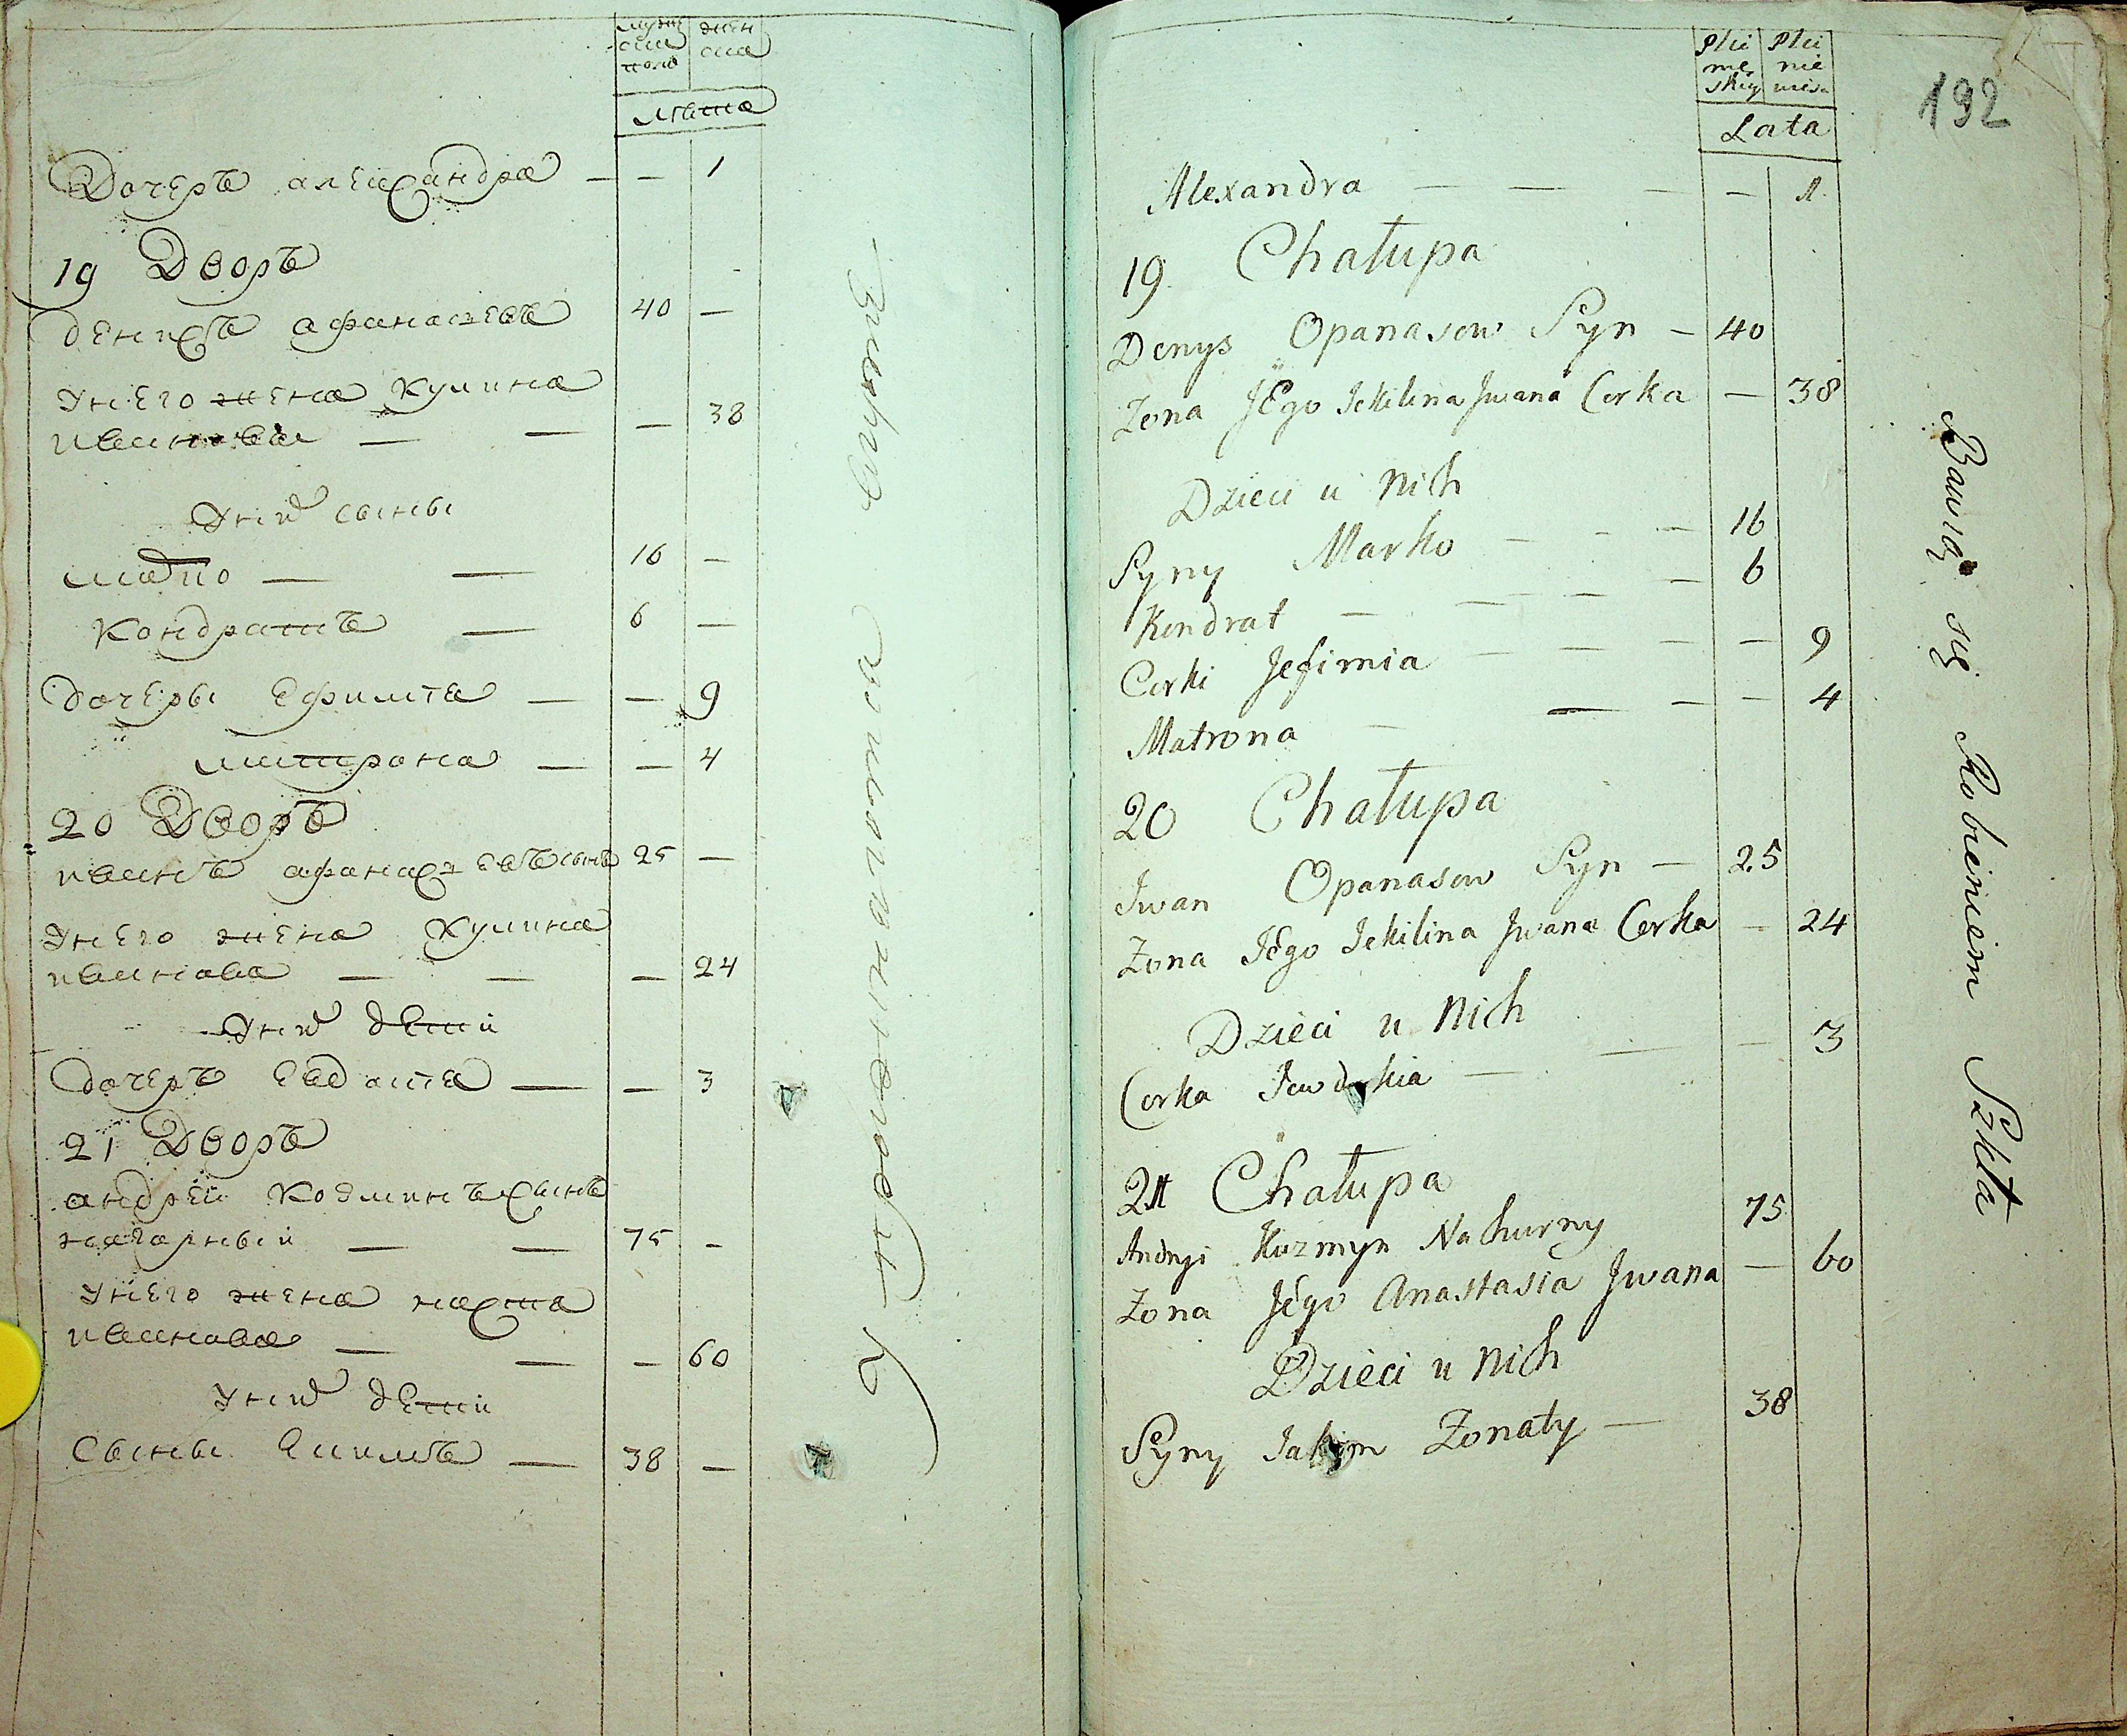 мужеска полу
женска
Лѣта
Дочеръ александра — — 1
19 Дворъ
денисъ афанасьевъ 40 —
унего жена кулина
иванова — — — 38
Унихъ сыны
марко — — 16 —
Кондратъ — 6 —
дочеры Ефимія — — 9
матрона — — 4
20 Дворъ
иванъ афанасьевъ сынъ 25 —
унего жена кулина
иванова — — — 24
Унихъ дети
дочеръ Евдокия — — 3
21 Дворъ
андрей козминъ сынъ
нагорный — — 75 —
унего жена настя
иванова — — — 60
Унихъ дети
Сыны Екимъ — 38 —
Płci męskiey
Płci niewies
Lata
192
Alexandra — — — — 1
19 Chałupa
Denys Opanasow Syn — 40
Zona Jego Jekilina Jwana Corka — 38
Dzieci u Nich
Syny Marko — — — 16
Kondrat — — — 6
Corki Jefimia — — — — 9
Matrona — — — — 4
20 Chałupa
Jwan Opanasow Syn — 25
Zona Jego Jekilina Jwana Corka — 24
Dzieci u Nich
Corka Jewdokia — — — 3
21 Chałupa
Andryi Kuzmyn Nahurny 75
Zona Jego Anastasia Jwana — 60
Dzieci u Nich
Syny Jakym Zonaty — 38
Bawią się Robieniem Szkła